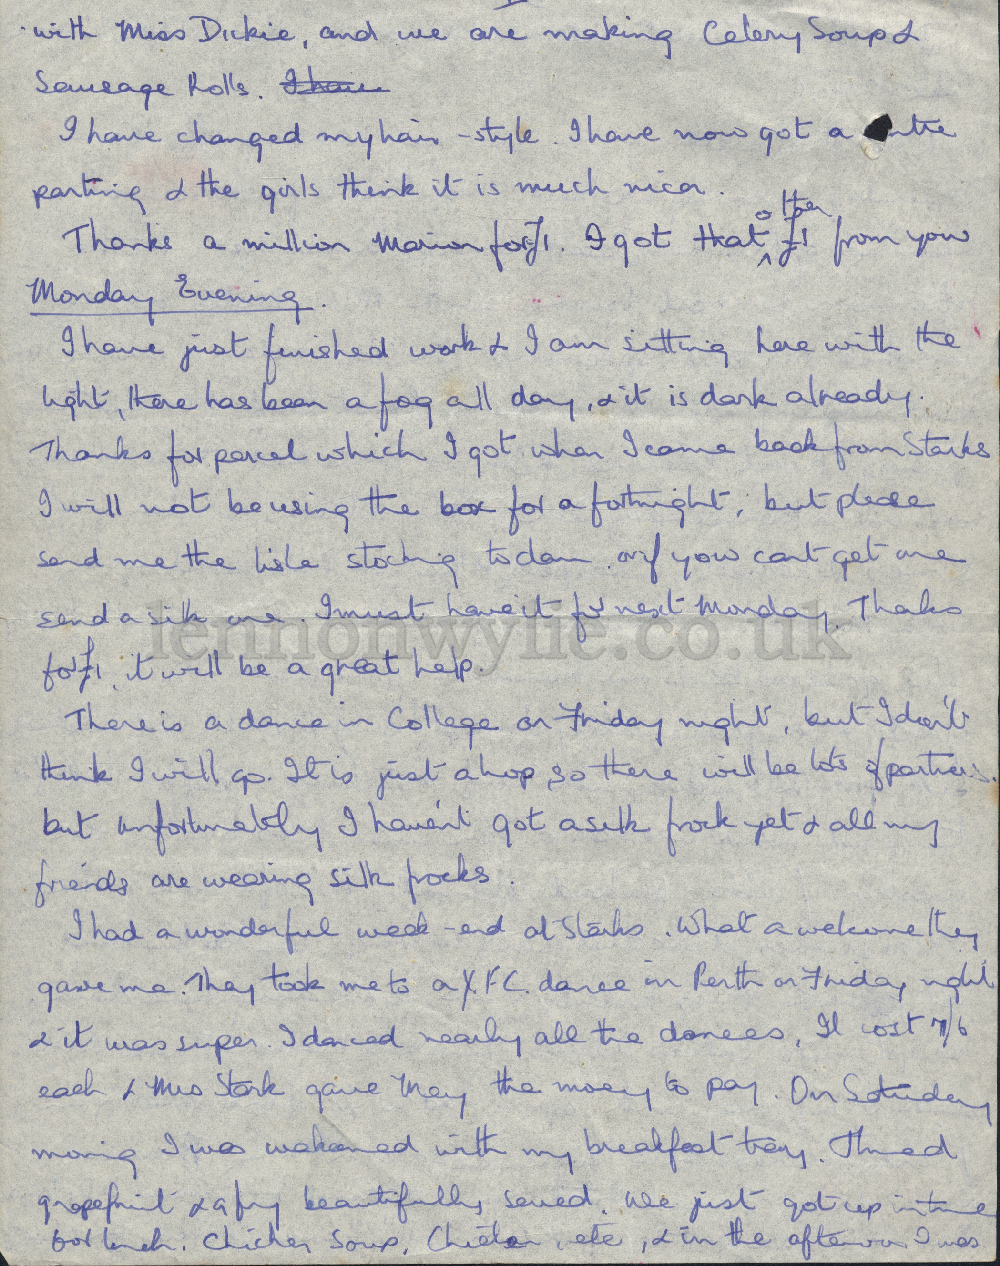 with Miss Dickie, and we are making Celery Soup &
Sausage Rolls. I have
I have changed my hair-style. I have now got a ntre
parting & the girls think it is much nicer.
Thanks a million Marion for £1. I got that other £1 from you
Monday Evening.
I have just finished work & I am sitting here with the
light, there has been a fog all day, & it is dark already.
Thanks for parcel which I got when I came back from Starks
I will not be using the box for a fortnight, but please
send me the lisle stocking to darn. or if you cant get one
send a silk one. I must have it for next Monday. Thanks
for £1, it will be a great help.
There is a dance in College on Friday night, but I don't
think I will go. It is just a hop, so there will be lots of partners.
but unfortunately I haven't got a silk frock yet & all my
friends are wearing silk frocks.
I had a wonderful week-end at Starks. What a welcome they
gave me. They took me to a Y.F.C. dance in Perth on Friday night
& it was super. I danced nearly all the dances, It cost 7/6
each & Mrs Stark gave May the money to pay. On Saturday
morning I was wakened with my breakfast tray. I had
grapefruit & a fry beautifully served. We just got up in time
for lunch. Chicken Soup, Chicken, etc, & in the afternoon I was
lennonwylie.co.uk